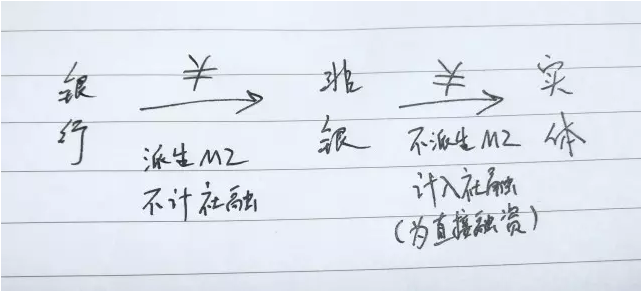 银行
¥
派生M2
不计社融
非银
¥
不派生M2
计入社融
(为直接融资)
实体